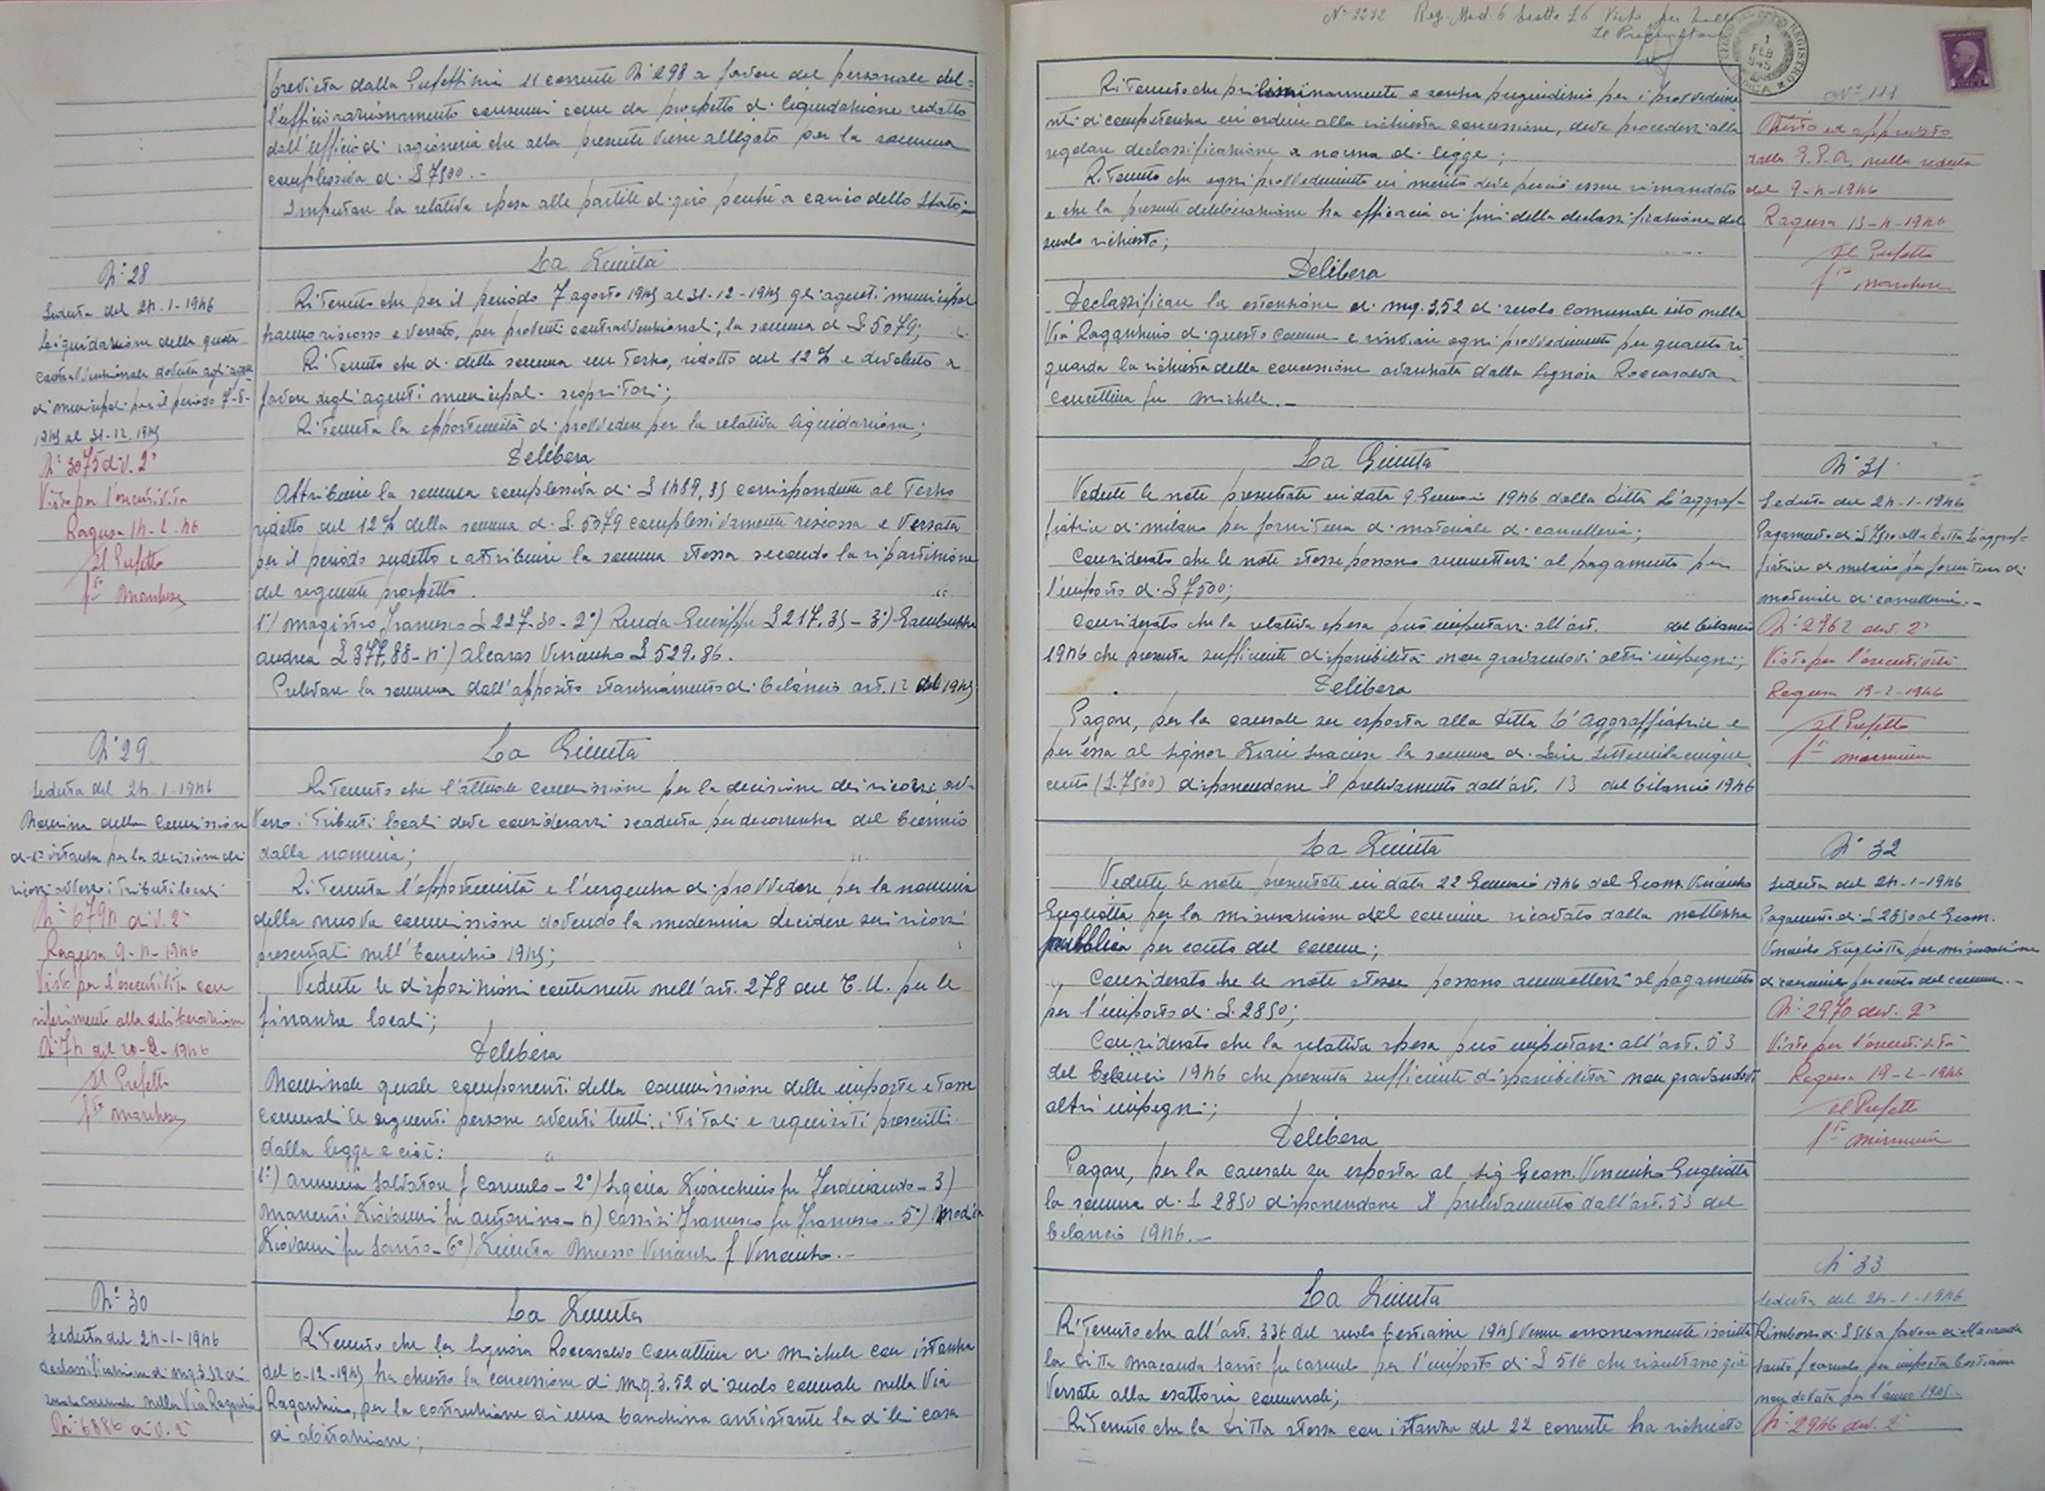 prevista dalla Prefettizia 11 corrente N. 298 a favore del personale del-
l'ufficio razionamento consumi come da prospetto di liquidazione redatto
dall'ufficio di ragioneria che alla presente viene allegato per la somma
complessiva di £ 7500.-
Imputare la relativa spesa alle partite di giro perché a carico dello Stato.-
N° 28
Seduta del 24-1-1946
Liquidazione della quota
contravvenzionale dovuta agli agen
ti municipali per il periodo 7-8-
1945 al 31-12-1945
N° 3075 div. 2ª
Visto per l'esecutività
Ragusa 14-2-46
Il Prefetto
La Giunta
Ritenuto che per il periodo 7 agosto 1945 al 31-12-1945 gli agenti municipali
hanno riscosso e versato, per proventi contravvenzionali, la somma di £ 5079;
Ritenuto che di detta somma un terzo, ridotto del 12% è devoluto a
favore degli agenti municipali scopritori;
Ritenuta la opportunità di provvedere per la relativa liquidazione;
Delibera
Attribuire la somma complessiva di £ 1489,35 corrispondente al terzo
ridotto del 12% della somma di £ 5079 complessivamente riscossa e versata
per il periodo sudetto e attribuire la somma stessa secondo la ripartizione
del seguente prospetto.
1°) Magistro Francesco £ 227.30 - 2°) Renda Giuseppe £ 217,35 - 3°)
Andrea £ 377,88 - 4°) Alcaras Vincenzo £ 529.86.
Prelevare la somma dall'apposito stanziamento di bilancio art. 12 del 1945
N° 29
Seduta del 24-1-1946
Nomina della Commissione
di 1ª istanza per la decisione dei
ricorsi avverso i tributi locali
N° 6794 div. 2ª
Ragusa 9-4-1946
Visto per l'esecutività con
riferimento alla deliberazione
N° 74 del 20-2-1946
Il Prefetto
La Giunta
Ritenuto che l'attuale commissione per la decisione dei ricorsi av-
verso i tributi locali deve considerarsi scaduta per decorrenza del biennio
dalla nomina;
Ritenuta l'opportunità e l'urgenza di provvedere per la nomina
della nuova commissione dovendo la medesima decidere sui ricorsi
presentati nell'esercizio 1945;
Vedute le disposizioni contenute nell'art. 278 del T.U. per le
finanze locali;
Delibera
Nominale quale componenti della commissione delle imposte e tasse
comunali le seguenti persone aventi tutti i titoli e requisiti prescritti
dalla legge e cioè:
1°) Armenia Salvatore f Carmelo - 2°) Gioacchino fu Ferdinando - 3)
Manenti Giovanni fu Antonino - 4) Cassisi Francesco fu Francesco - 5°) Modica
Giovanni fu Santo - 6°) Giunta Musso Vincenzo f Vincenzo.-
N° 30
Seduta del 24-1-1946
Declassificazione di mq. 3.52 di
suolo comunale nella Via
N° 6886 div. 2ª
La Giunta
Ritenuto che la Signora Roccasalvo Concettina di Michele con istanza
del 6-12-1945 ha chiesto la concessione di mq. 3.52 di suolo comunale nella Via
per la costruzione di una banchina antistante la di lei casa
di abitazione;
N° 3232 Reg. Mod. 6
1 FEB 945
Ritenuto che preliminarmente e senza pregiudizio per i provvedime
nti di competenza in ordine alla richiesta concessione, deve procedersi alla
regolare declassificazione a norma di legge;
Ritenuto che ogni provvedimento in merito deve perciò essere rimandato
e che la presente deliberazione ha efficacia ai fini della declassificazione del
suolo richiesto;
Delibera
Declassificare la estensione di mq. 3,52 di suolo comunale sito nella
Via di questo Comune e rinviare ogni provvedimento per quanto ri-
guarda la richiesta della concessione avanzata dalla Signora Roccasalva
Concettina fu Michele.-
N° 111
Visto ed approvato
dalla G.P.A. nella seduta
del 9-4-1946
Ragusa 13-4-1946
Il Prefetto
La Giunta
Vedute le note presentate in data 9 Gennaio 1946 dalla Ditta L'Aggraf-
fiatrice di Milano per fornitura di materiale di cancelleria;
Considerato che le note stesse possono ammettersi al pagamento per
l'importo di £ 7500;
Considerato che la relativa spesa può imputarsi all'art. del bilancio
1946 che presenta sufficiente disponibilità non gravandovi altri impegni;
Delibera
Pagare, per la causale su esposta alla Ditta L'Aggraffiatrice e
per essa al Signor la somma di Lire settemilacinque
cento (£ 7500) disponendone il prelevamento dall'art. 13 del bilancio 1946
N° 31
Seduta del 24-1-1946
Pagamento di £ 7500 alla Ditta L'Aggraf-
fiatrice di Milano per fornitura di
materiale di cancelleria.-
N° 2962 div. 2ª
Visto per l'esecutività
Ragusa 19-2-1946
Il Prefetto
La Giunta
Vedute le note presentate in data 22 Gennaio 1946 dal Geom. Vincenzo
Gugliotta per la misurazione del concime ricavato dalla nettezza
pubblica per conto del comune;
Considerato che le note stesse possono ammettersi al pagamento
per l'importo di £ 2850;
Considerato che la relativa spesa può imputarsi all'art. 53
del bilancio 1946 che presenta sufficiente disponibilità non gravandovi
altri impegni;
Delibera
Pagare, per la causale su esposta al Sig. Geom. Vincenzo Gugliotta
la somma di £ 2850 disponendone il prelevamento dall'art. 53 del
bilancio 1946.-
N° 32
Seduta del 24-1-1946
Pagamento di £ 2850 al Geom.
Vincenzo Gugliotta per misurazione
di concime per conto del comune.-
N° 2970 div. 2ª
Visto per l'esecutività
Ragusa 19-2-1946
Il Prefetto
La Giunta
Ritenuto che all'art. 336 del ruolo bestiame 1945 venne erroneamente iscritta
la Ditta Macauda Santo fu Carmelo per l'importo di £ 516 che risultano già
versate alla esattoria comunale;
Ritenuto che la Ditta stessa con istanza del 22 corrente ha richiesto
N° 33
Seduta del 24-1-1946
Rimborso di £ 516 a favore di Macauda
Santo f Carmelo per imposta bestiame
non dovuta per l'anno 1945.-
N° 2946 div. 2ª